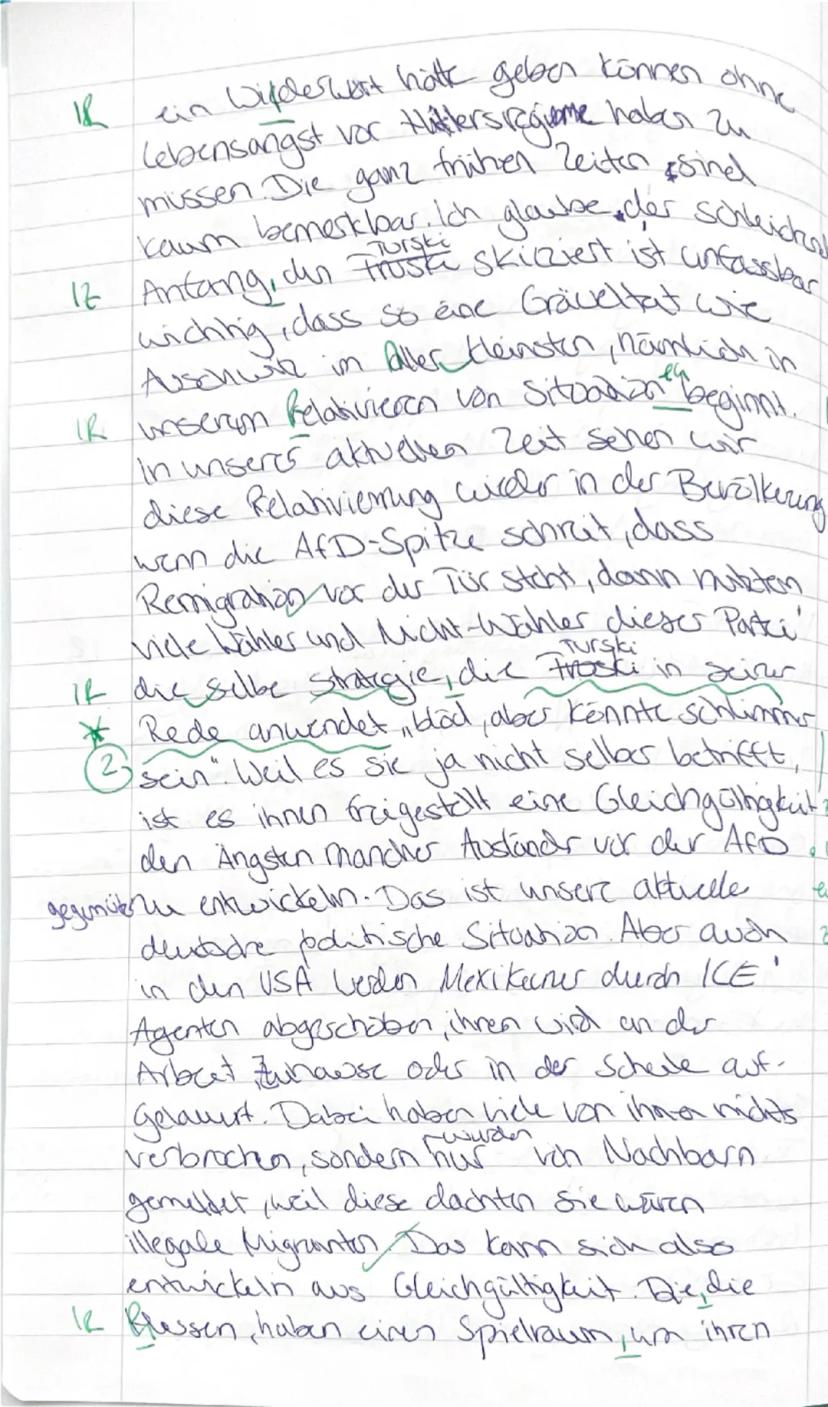 1R ein Wiederwort hätte geben können ohne
Lebensangst vor Hitlersregieme haben zu
müssen. Die ganz frühen Zeiten sind
kaum bemerkbar. Ich glaube, der schleichend
Turski
1Z Anfang, den Truski skizziert ist unfassbar
wichtig, dass so eine Gräueltat wie
Auschwitz im Aller kleinsten, nämlich in
en
1R unserem Relativieren von Situation beginnt.
In unserer aktuellen Zeit sehen wir
diese Relativierung wieder in der Bevölkerung
wenn die AfD-Spitze schreit, dass
Remigration vor der Tür steht, dann nutzten
viele Wähler und Nicht-Wähler dieser Partei
Turski
1R die selbe stratgie, die Truski in seiner
* Rede anwendet „blöd, aber könnte schlimmer
2 sein". Weil es sie ja nicht selber betrifft,
ist es ihnen freigestellt eine Gleichgültigkeit
den Ängsten mancher Ausländer vor der AfD
gegenüber zu entwickeln. Das ist unsere aktuelle
deutsche politische Situation. Aber auch
in den USA werden Mexikaner durch ICE'
Agenten abgeschoben, ihnen wird an der
Arbeit Zuhause oder in der Schule auf-
gelauert. Dabei haben viele von ihnen nichts
wurden
verbrochen, sondern nur von Nachbarn
gemeldet, weil diese dachten sie wären
illegale Migranten. Das kann sich also
entwickeln aus Gleichgültigkeit. Die, die
1R Hassen, haben einen Spielraum, um ihren